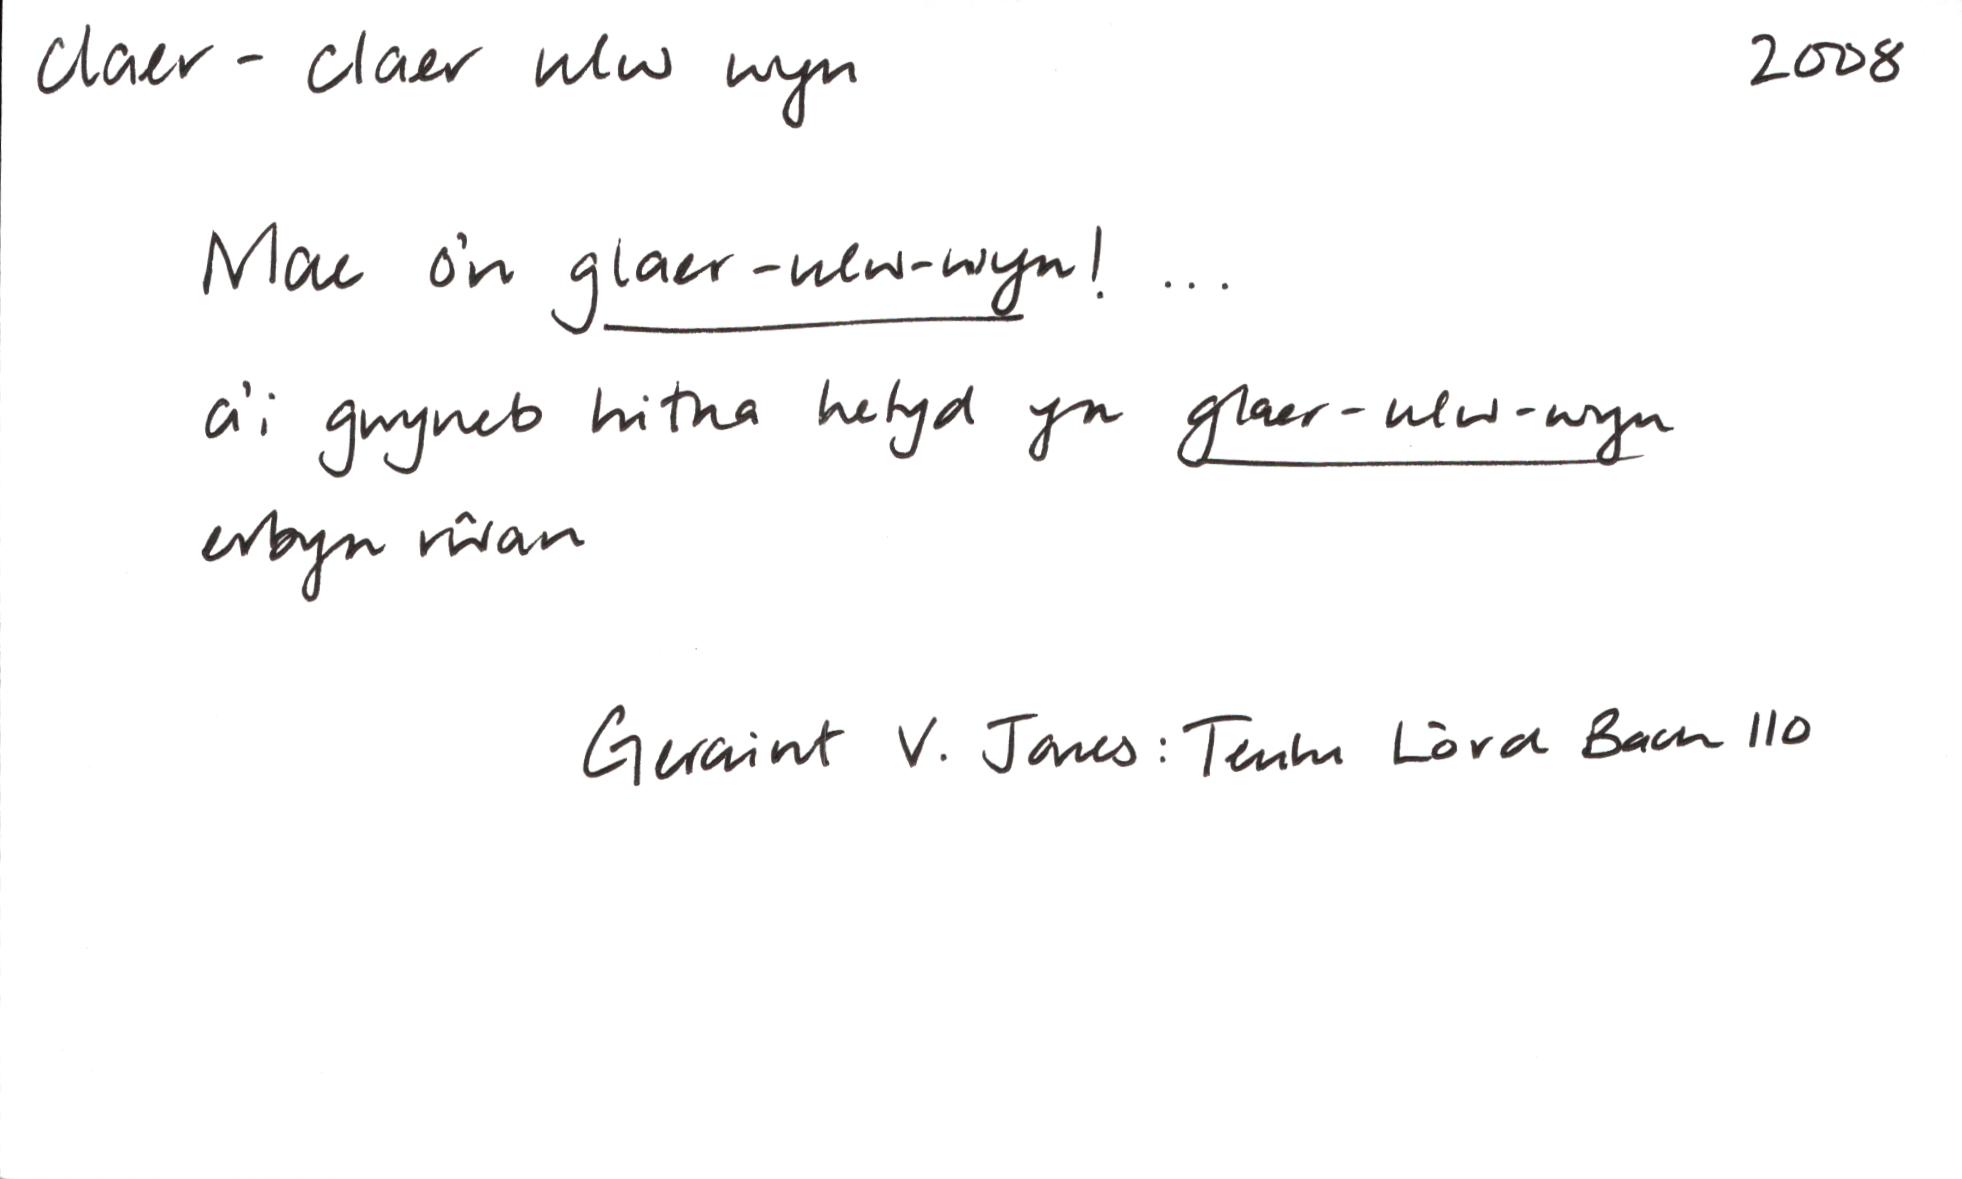 claer - claer ulw wyn 2008
Mae o'n glaer-ulw-wyn! ...
a'i gwyneb hitha hefyd yn glaer-ulw-wyn
erbyn rŵan
Geraint V. Jones: Teulu Lòrd Bach 110